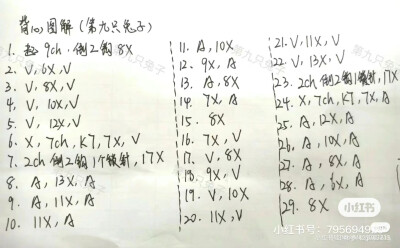 背心图解（第九只兔子）
1. 起9ch，倒2钩8X
2. V, 6X, V
3. V, 8X, V
4. V, 10X, V
5. V, 12X, V
6. X, 7ch, K7, 7X, V
7. 2ch 倒2钩1个锁针, 17X
8. A, 13X, A
9. A, 11X, A
10. 11X, A
11. A, 10X
12. 9X, A
13. A, 8X
14. 7X, A
15. 8X
16. 7X, V
17. V, 8X
18. 9X, V
19. V, 10X
20. 11X, V
21. V, 11X, V
22. V, 13X, V
23. 2ch 倒2钩1锁针, 17X
24. X, 7ch, K7, 7X, A
25. A, 12X, A
26. A, 10X, A
27. A, 8X, A
28. A, 6X, A
29. 8X
小红书
小红书号：7956949
第九只兔子